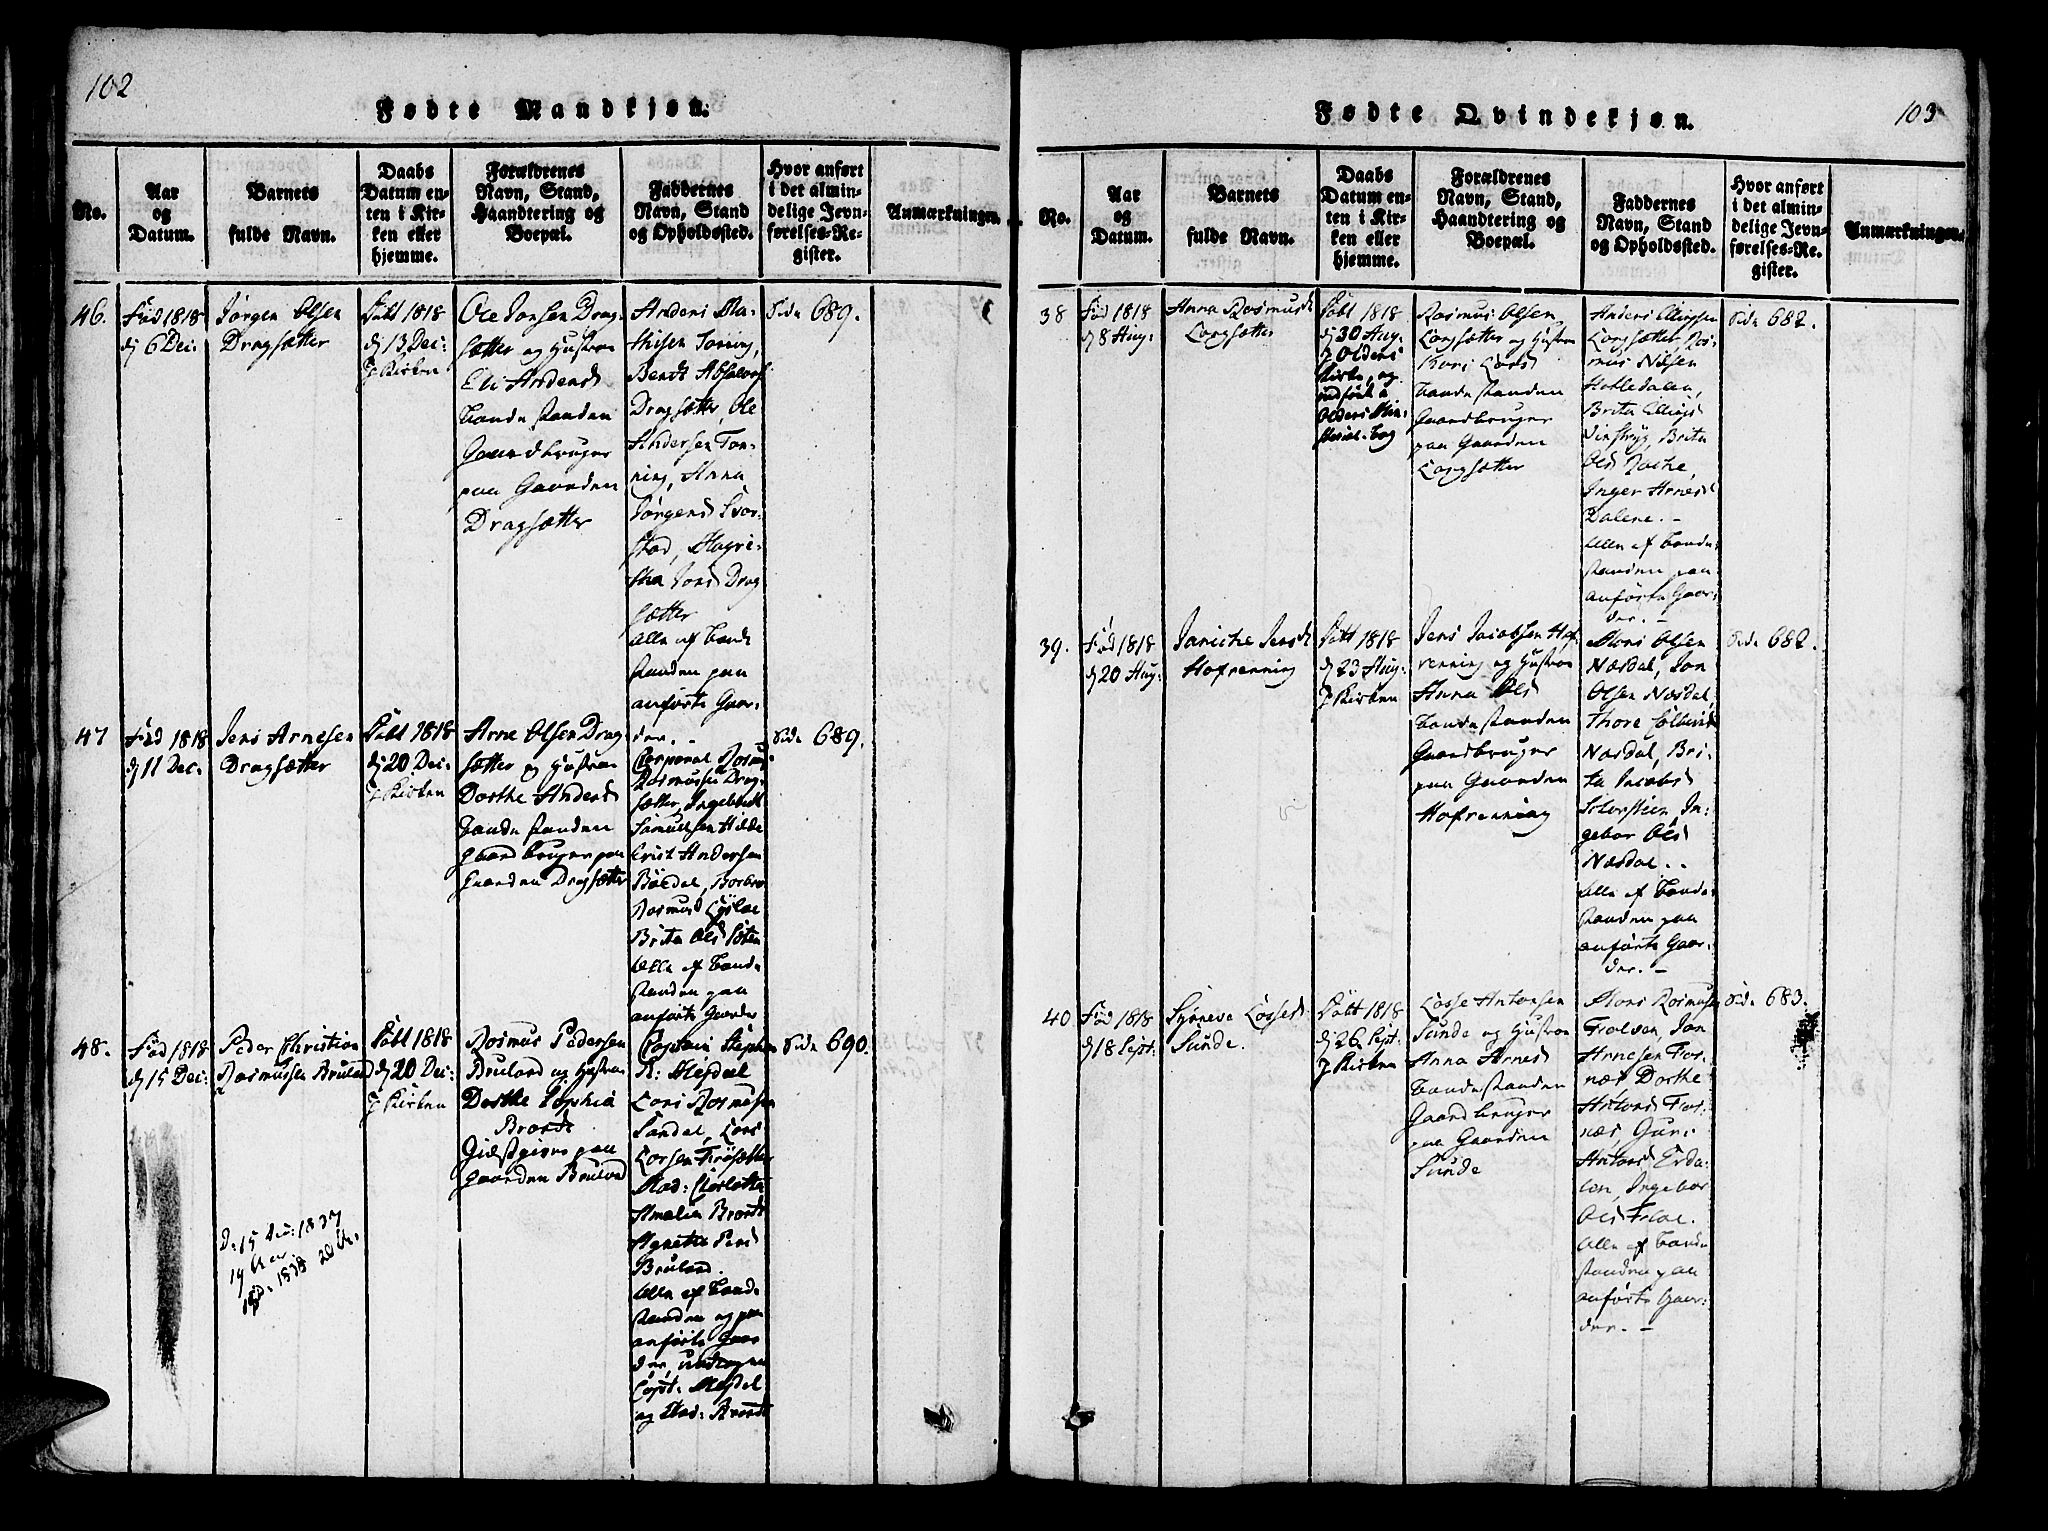 102
Fødte Mandkjøn.
No.
Aar
og
Datum.
Barnets
fulde Navn.
Daabs
Datum en-
ten i Kir-
ken eller
hjemme.
Forældrenes
Navn, Stand,
Haandtering og
Boepæl.
Faddernes
Navn, Stand
og Opholdssted.
Hvor anført
i det almin-
delige Jevn-
førelses-Re-
gister.
Anmærkninger.
46.
Fød 1818
d 6 Dec:
Jørgen Olsen
Dragsætter
Døbt 1818
d 13 Dec:
J Kirken
Ole Jonsen Drag-
sætter og Hustroe
Eli Anders
bondestanden
Gaardbruger
paa Gaarden
Dragsætter
Anders Ma-
thisen
Bendt
Dragsætter, Ole
Andersen Ton-
ning, Anna
Jørgens
stad,
Jons Drag-
sætter
Alle af bonde
standen paa
anførte Gaar-
der. -
Side 689.
47
Fød 1818
d 11 Dec.
Jens Arnesen
Dragsætter
Døbt 1818
d 20 Dec:
J Kirken
Arne Olsen Drag-
sætter og Hustroe
Dorthe Anders
bondestanden
Gaardbruger paa
Gaarden Dragsætter
Corporal Rasmus
Rasmussen Drag-
sætter, Ingebrikt
Samuelsen Hilde
Erik Andersen
Bödal,
Rasmus
Brita Ols
Alle af bonde
standen paa
anførte Gaarder
Side 689.
48.
Fød 1818
d 15 Dec:
Peder Christian
Rasmussen Bruland
Døbt 1818
d 20 Dec:
J Kirken
Rasmus Pedersen
Bruland og Hustroe
Dorthe Sophia
Brandt
Giæstgiver paa
Gaarden Bruland
Captain Stephen
R: Mejdel
Lars Rasmussen
Sandal, Lars
Larsen
Mad: Charlotte
Amalia Brandt
Agnethe
Bruland.
Alle af bonde
standen og paa
anførte Gaar
der, undtagen
Capt: Mejdel
og Mad: Brandt
Side 690.
D. 15 Dec: 1837
19 Aar
1838 20 Aar.
103
Fødte Qvindekjøn.
No.
Aar
og
Datum.
Barnets
fulde Navn.
Daabs
Datum en-
ten i Kir-
ken eller
hjemme.
Forældrenes
Navn, Stand,
Haandtering og
Boepæl.
Faddernes
Navn, Stand
og Opholdssted.
Hvor anført
i det almin-
delige Jevn-
førelses-Re-
gister.
Anmærkninger.
38
Fød 1818
d 8 Aug:
Anna Rasmusd
Langsætter
Døbt 1818
d 30 Aug:
J Oldens
Kirke, og
indført i
Oldens Min-
sterial-bog
Rasmus Olsen
Langsætter og Hustroe
Kari Lars
bondestanden
Gaardbruger
paa Gaarden
Langsætter
Anders Ellingsen
Langsætter, Ras-
mus Nilsen
Holledalen,
Brita Ellings
Brita
Ols
Inger Arnes
Dalene. -
Alle af bonde-
standen paa
anførte Gaar-
der. -
Side 682.
39.
Fød 1818
d 20 Aug:
Janiche Jensd
Hofrenning
Døbt 1818
d 23 Aug:
J Kirken
Jens Jacobsen Hof-
renning og Hustroe
Anna Ols
bondestanden
Gaardbruger
paa Gaarden
Hofrenning
Mons Olsen
Næsdal, Jon
Olsen Næsdal,
Thore
Næsdal, Bri-
ta Jacobs
In-
gebor Ols
Næsdal..
Alle af bonde-
standen paa
anførte Gaar-
der. -
Side 682.
40
Fød 1818
d 18 Sept:
Synneve Lasses
Sunde.
Døbt 1818
d 26 Sept:
J Kirken
Lasse Antonsen
Sunde og Hustroe
Anna Arnes
bondestanden
Gaardbruger
paa Gaarden
Sunde
Mons Rasmusen
Jon
Arnesen For-
næs Dorthe
Antons For-
næs, Guri
Antons Erda-
len, Ingebor
Ols
Alle af bonde
standen paa
anførte Gaar-
der. -
Side 683.